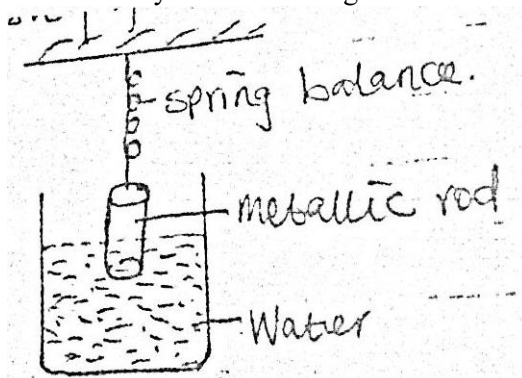 spring balance.
metallic rod
Water